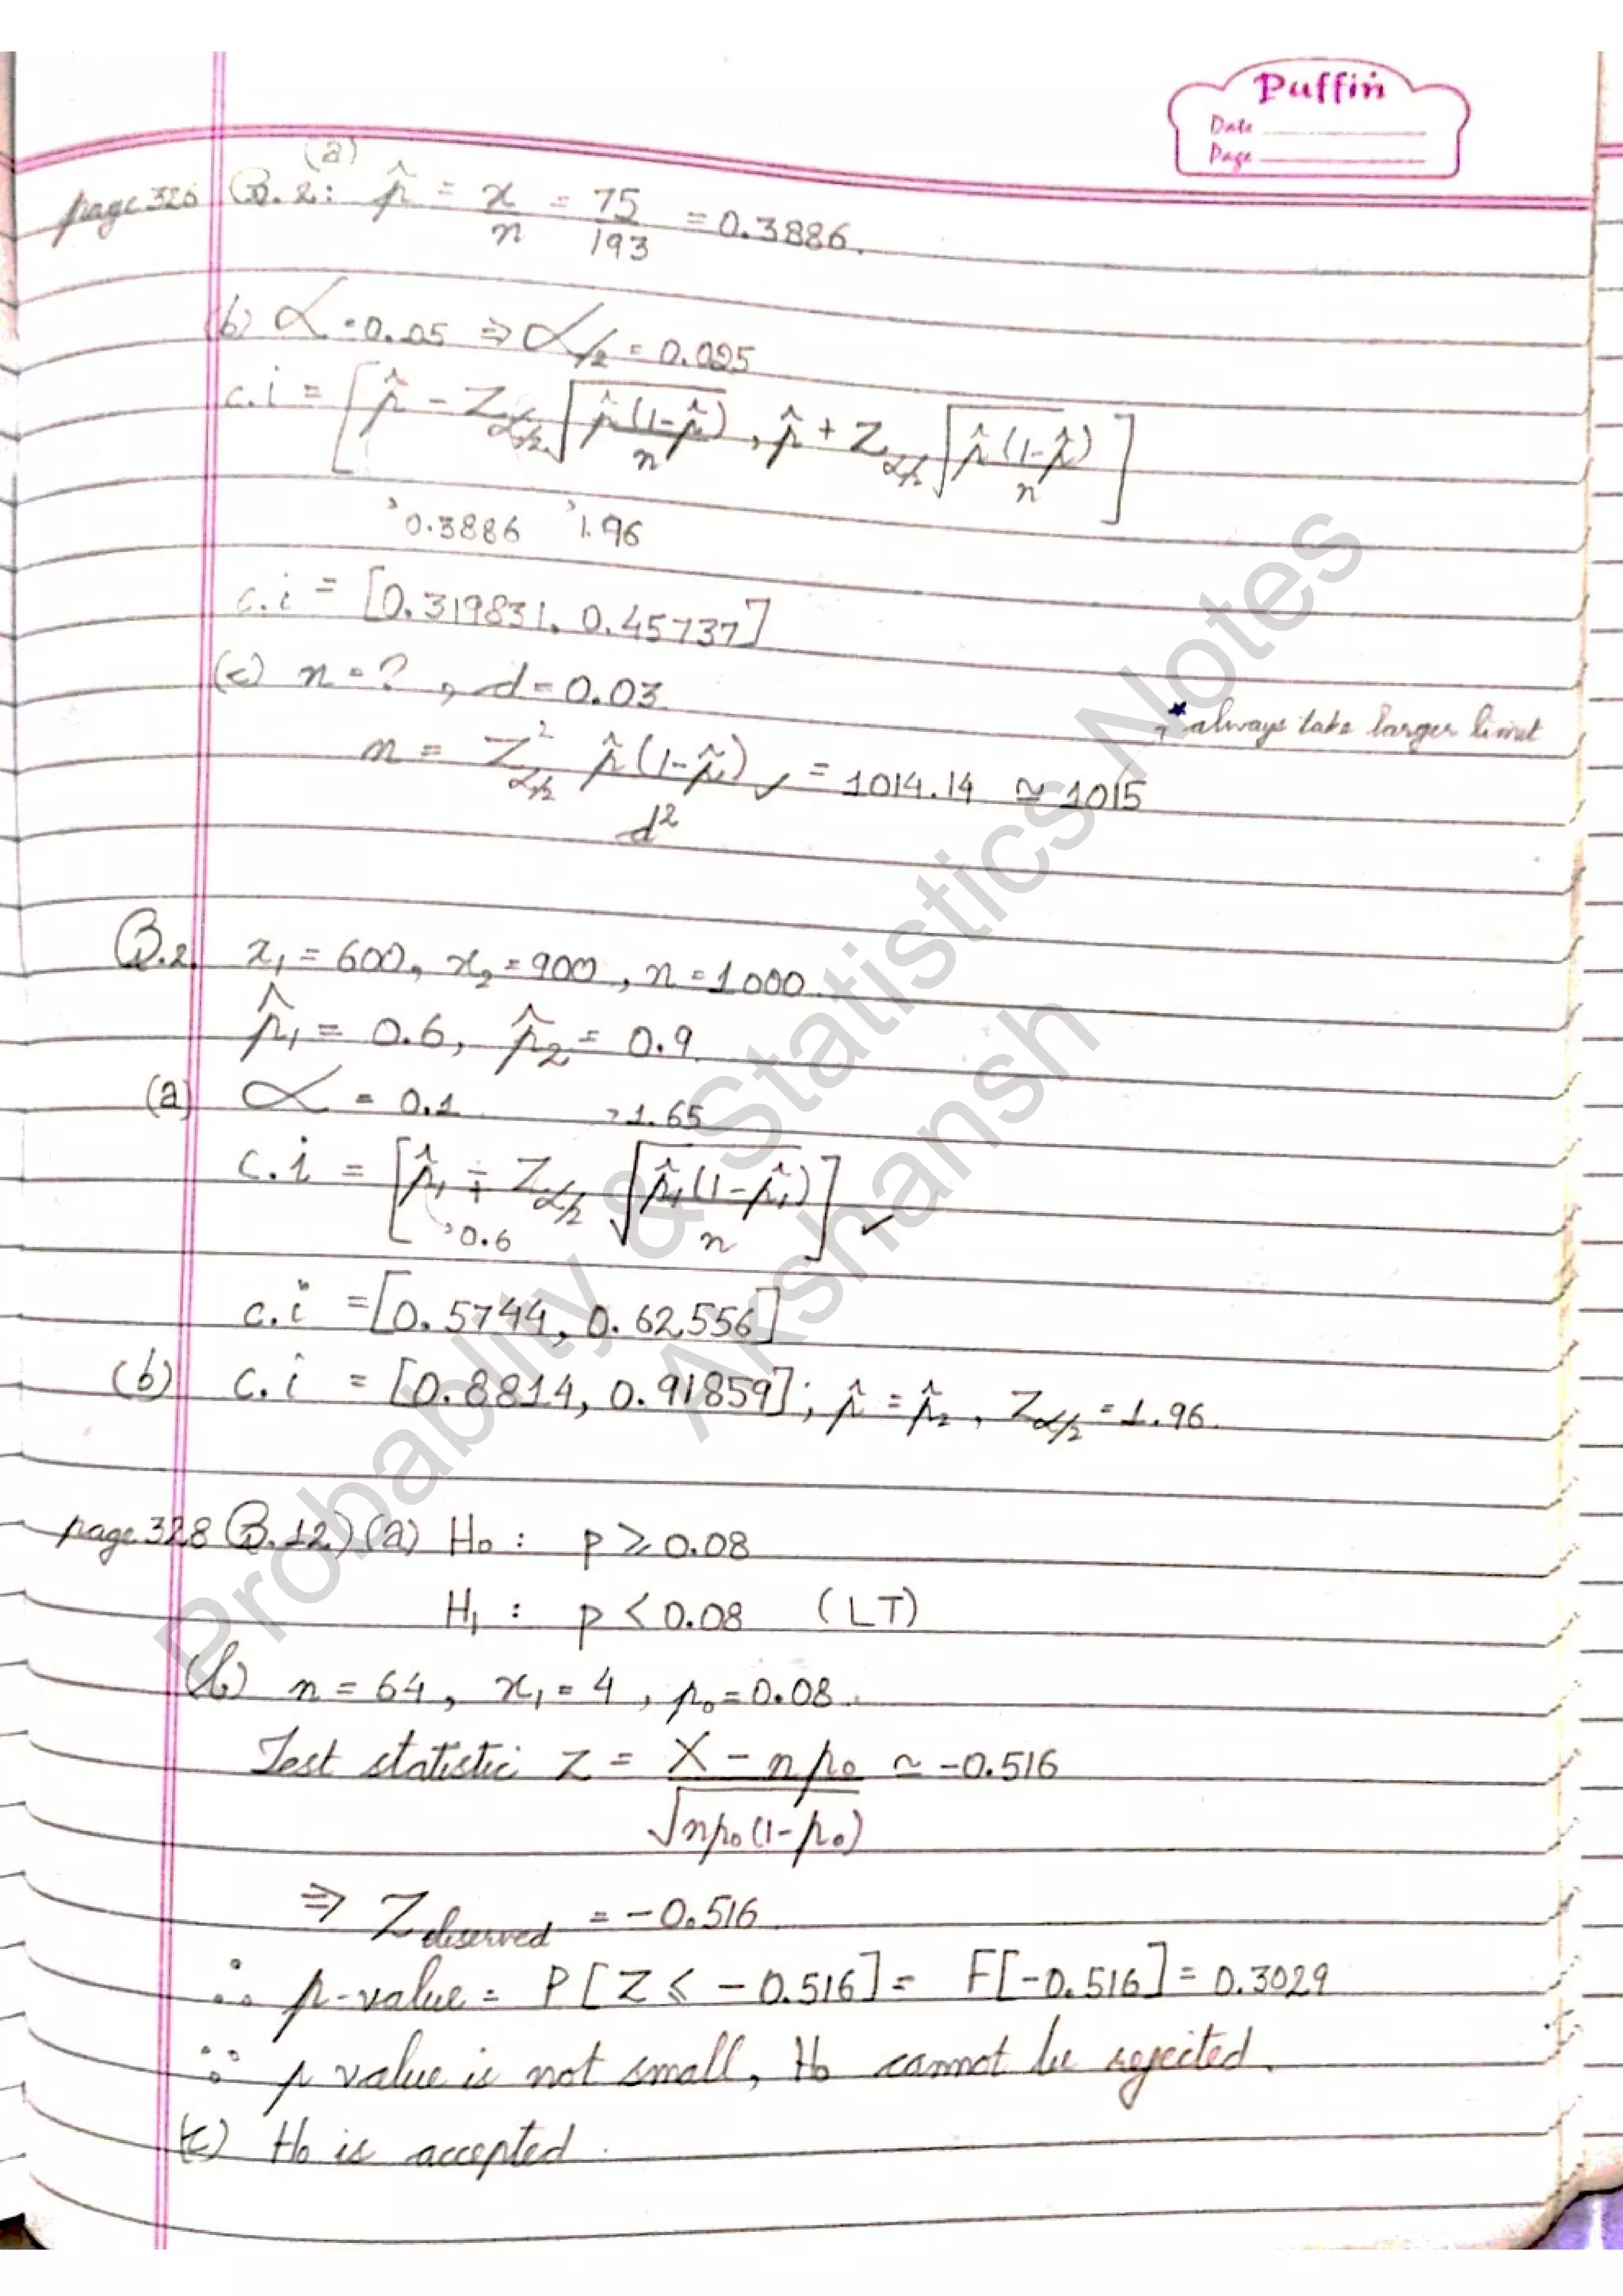 Puffin
Date
Page
(a)
page 326 Q.2: p̂ = x/n = 75/193 = 0.3886.
(b) α = 0.05 ⇒ α/2 = 0.025
c.i = [p̂ - Z_α/2 √(p̂(1-p̂)/n), p̂ + Z_α/2 √(p̂(1-p̂)/n)]
→0.3886 →1.96
c.i = [0.319831, 0.45737]
(c) n = ?, d = 0.03
*always take larger limit
n = Z²_α/2 p̂(1-p̂)/d² ✓ = 1014.14 ≃ 1015
Q.2. x₁ = 600, x₂ = 900, n = 1000.
p̂₁ = 0.6, p̂₂ = 0.9
(a) α = 0.1 →1.65
c.i = [p̂₁ ∓ Z_α/2 √(p̂₁(1-p̂₁)/n)] ✓
→0.6
c.i = [0.5744, 0.62556]
(b) c.i = [0.8814, 0.91859]; p̂ = p̂₂, Z_α/2 = 1.96.
page 328 Q.12) (a) H₀ : p ≥ 0.08
H₁ : p < 0.08 (LT)
(b) n = 64, x₁ = 4, p₀ = 0.08.
Test statistic Z = X - np₀/√np₀(1-p₀) ≃ -0.516
⇒ Z observed = -0.516
∴ p-value = P[Z ≤ -0.516] = F[-0.516] = 0.3029
∵ p value is not small, H₀ cannot be rejected.
(c) H₀ is accepted.
Probablity & Statistics Notes
Akshansh